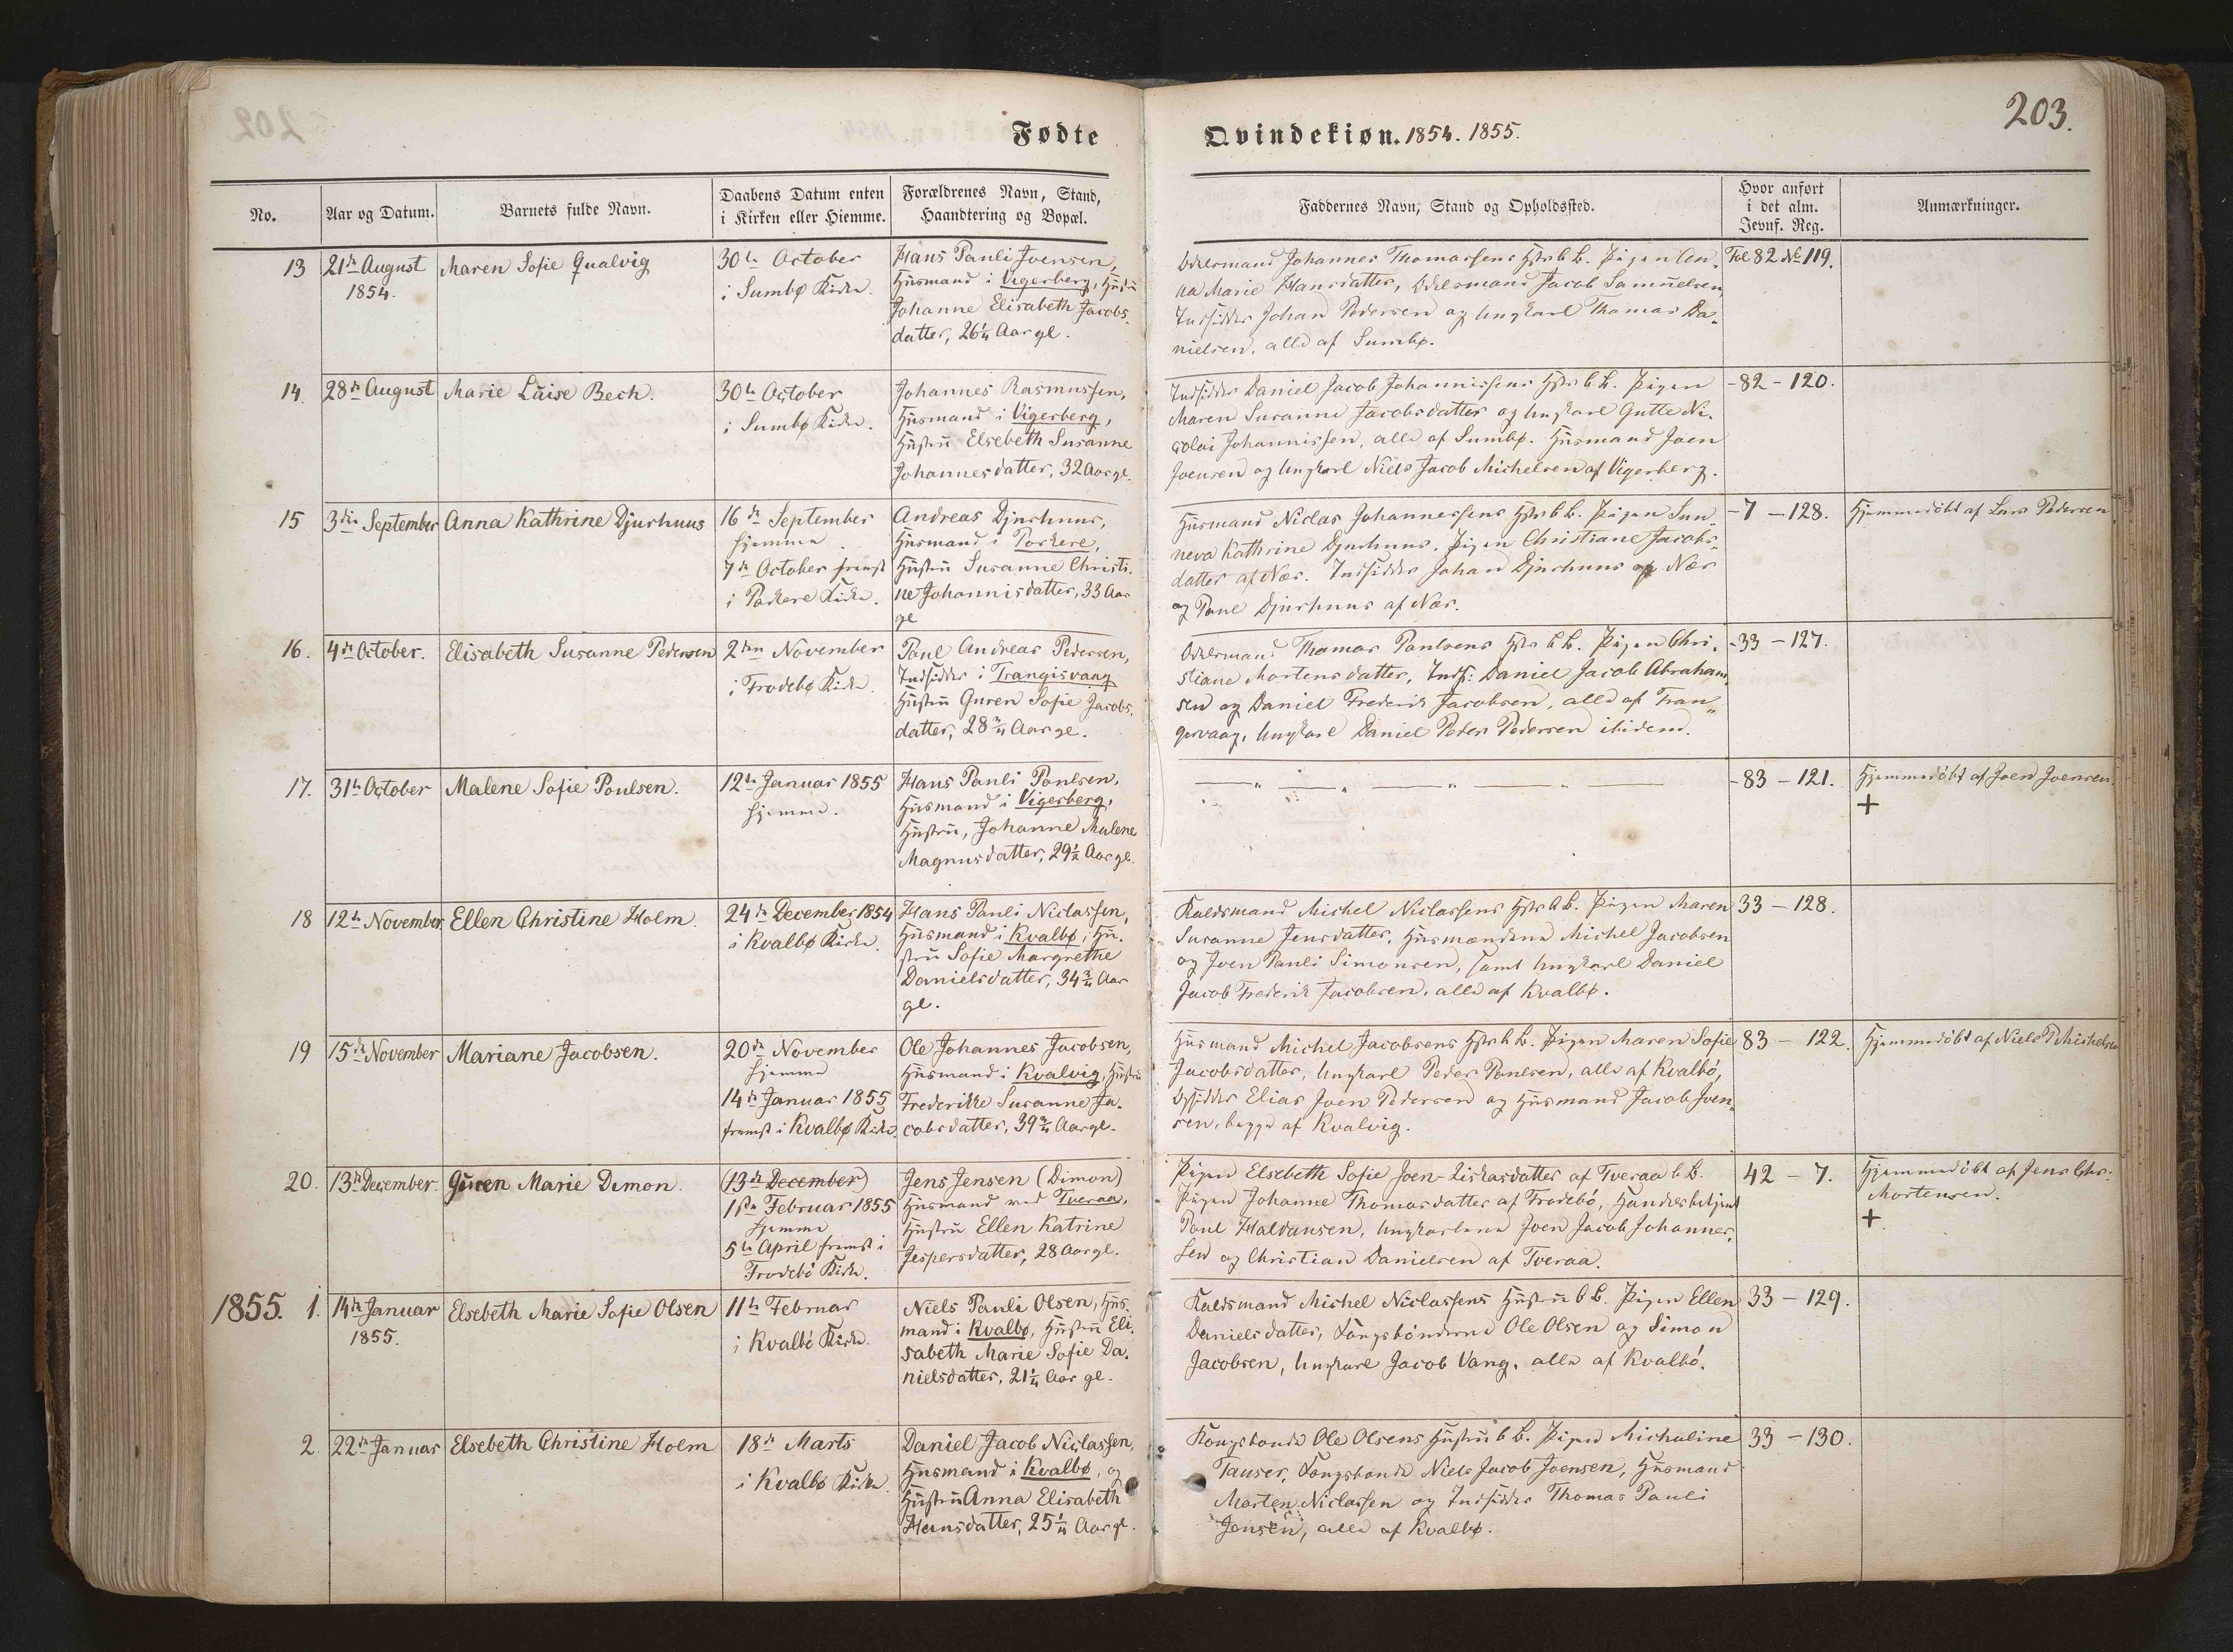 203.
Fødte
Qvindekiøn. 1854. 1855.
No.
Aar og Datum.
Barnets fulde Navn.
Daabens Datum enten
i Kirken eller Hiemme.
Forældrenes Navn, Stand,
Haandtering og Bopæl.
Faddernes Navn, Stand og Opholdssted.
Hvor anført
i det alm.
Jevnf. Reg.
Anmærkninger.
13
21de August
1854.
Maren Sofie Qualvig
30te October
i Sumbø Kirke.
Hans Pauli Joensen,
Huusmand i Vigerberg, Hustru
Johanne Elisabeth Jacobs-
datter, 26¼ Aar gl.
Odelsmand Johannes Thomassens Hstr b. B. Pigen An-
na Marie Hansdatter, Odelsmand Jacob Samuelsen,
Indsidder Johan Pedersen og Ungkarl Thomas Da-
nielsen, alle af Sumbø.
Fol 82 No 119.
14.
28de August
Marie Luise Bech.
30te October
i Sumbø Kirke.
Johannes Rasmussen,
Husmand i Vigerberg,
Hustru Elsebeth Susanne
Johannesdatter, 32 Aar gl.
Indsidder Daniel Jacob Johannissens Hstr b. B. Pigen
Maren Susanne Jacobsdatter og Ungkarl Gutte Ni-
colai Johannissen, alle af Sumbø. Husmand Joen
Joensen og Ungkarl Niels Jacob Michelsen af Vigerberg.
- 82 - 120.
15
3die September
Anna Kathrine Djurhuus
16de September
hjemme.
7de October fremst
i Porkere Kirke.
Andreas Djurhuus,
Husmand i Porkere,
Hustru Susanne Christi-
ne Johannisdatter, 33 Aar
gl
Husmand Niclas Johannessens Hstr b. B. Pigen Sun-
neva Kathrine Djurhuus, Pigen Christiane Jacobs-
datter af Nær. Indsidder Johan Djurhuus af Nær
og Poul Djurhuus af Nær.
- 7 - 128.
Hjemmedöbt af Lars Pedersen
16.
4de October.
Elisabeth Susanne Pedersen
2den November
i Frodebø Kirke.
Poul Andreas Pedersen,
Indsidder i Trangisvaag
Hustru Guren Sofie Jacobs-
datter, 28¾ Aar gl.
Odelsmand Thomas Poulsens Hstr b. B. Pigen Chri-
stiane Mortensdatter, Inds: Daniel Jacob Abraham-
sen og Daniel Frederik Jacobsen, alle af Tran-
gesvaag, Ungkarl Daniel Peder Pedersen ibidem.
- 33 - 127.
17.
31te October
Malene Sofie Poulsen.
12te Januar 1855
hjemme.
Hans Pauli Poulsen,
Husmand i Vigerberg,
Hustru, Johanne Malene
Magnusdatter, 29½ Aar gl.
— " — " — " — " —
- 83 - 121.
Hjemmedöbt af Joen Joensen.
+
18
12te November
Ellen Christine Holm.
24de December 1854
i Kvalbø Kirke.
Hans Pauli Niclassen,
Husmand i Kvalbø, Hu-
stru Sofie Margrethe
Danielsdatter, 34¾ Aar
gl.
Michel Niclassens Hstr b. B. Pigen Maren
Susanne Jensdatter, Husmændene Michel Jacobsen
og Joen Pauli Simonsen, samt Ungkarl Daniel
Jacob Frederik Jacobsen, alle af Kvalbø.
33 - 128.
19
15de November
Mariane Jacobsen.
20de November
hjemme
14de Januar 1855
fremst i Kvalbø Kirke.
Ole Johannes Jacobsen,
Husmand i Kvalvig, Hustru
Frederikke Susanne Ja-
cobsdatter, 39¾ Aar gl.
Husmand Michel Jacobsens Hstr b. B. Pigen Maren Sofie
Jacobsdatter, Ungkarl Peder Poulsen, alle af Kvalbö,
Elias Joen Pedersen og Husmand Jacob Joen-
sen, begge af Kvalvig.
83 - 122.
Hjemmedöbt af Niels P Michelsen
20.
13de December.
Guren Marie Dimon.
(13de December)
1ste Februar 1855
hjemme
5te April fremst i
Frodebö Kirke.
Jens Jensen (Dimon)
Husmand ved Tveraa,
Hustru Ellen Katrine
Jespersdatter, 28 Aar gl.
Pigen Elsebeth Sofie Joen-Liskasdatter af Tveraa b. B.
Pigen Johanne Thomasdatter af Frodebö, Handelsbetjent
Poul Haldansen, Ungkarlene Joen Jacob Johannes-
sen og Christian Danielsen af Tveraa.
42 - 7.
Hjemmedöbt af Jens Chr.
Mortensen.
+
1855.
1.
14de Januar
1855.
Elsebeth Marie Sofie Olsen
11te Februar
i Kvalbö Kirke.
Niels Pauli Olsen, Hus-
mand i Kvalbø, Hustru Eli-
sabeth Marie Sofie Da-
nielsdatter, 21¼ Aar gl.
Michel Niclassens Hustru b. B. Pigen Ellen
Danielsdatter, Kongsbönderne Ole Olsen og Simon
Jacobsen, Ungkarl Jacob Vang, alle af Kvalbö.
33 - 129.
2.
22de Januar
Elsebeth Christine Holm
18de Marts
i Kvalbø Kirke.
Daniel Jacob Niclassen,
Husmand i Kvalbø, og
Hustru Anna Elisabeth
Hansdatter, 25¼ Aar gl.
Kongsbonde Ole Olsens Hustru b. B. Pigen Michaline
Tauser, Kongsbonde Niels Jacob Joensen, Husmand
Morten Niclassen og Indsidder Thomas Pauli
Jensen, alle af Kvalbø.
33 - 130.